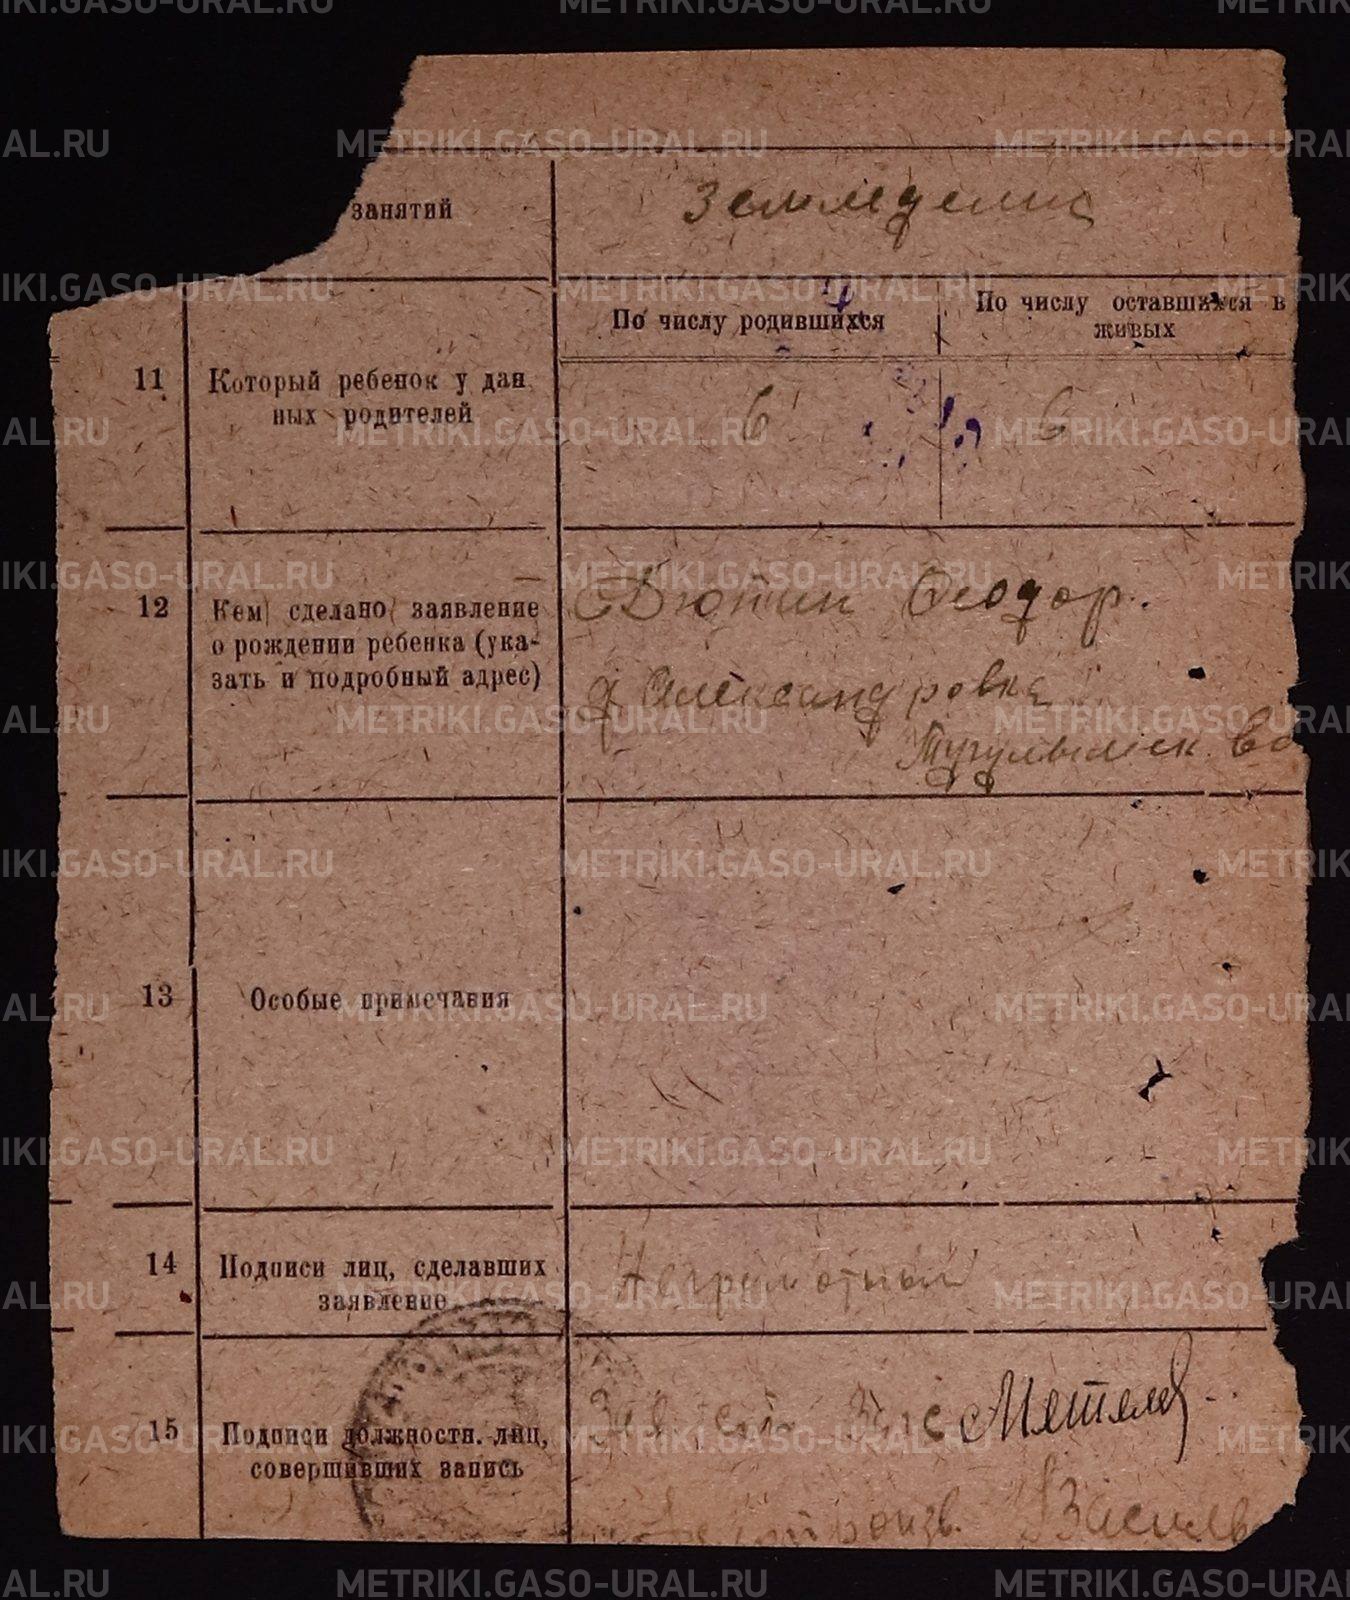 занятий
земледелие
По числу родившихся
По числу оставшихся в живых
11
Который ребенок у дан
ных родителей
6
6
12
Кем сделано заявление
о рождении ребенка (ука-
зать и подробный адрес)
Дютин Феодор.
д Александровка
Тугулымск. во
13
Особые примечания
14
Подписи лиц, сделавших
заявление
Неграмотный
15
Подписи должностн. лиц,
совершивших запись
Зав. Загс
произв.
METRIKI.GASO-URAL.RU